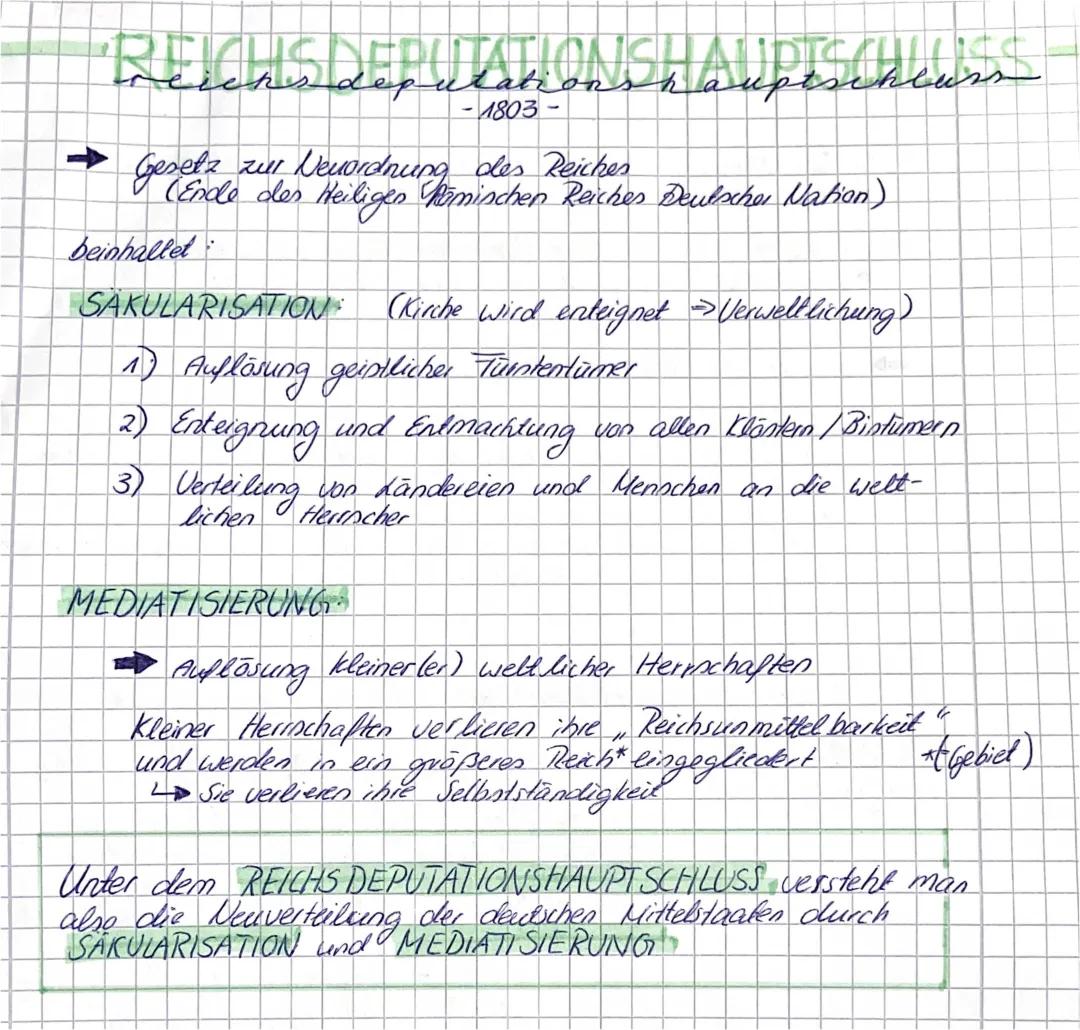 REICHSDEPUTATIONSHAUPTSCHLUSS
reichsdeputationshauptschluss
- 1803 -
➡ Gesetz zur Neuordnung des Reiches
(Ende des Heiligen Römischen Reiches Deutscher Nation)
beinhaltet:
SÄKULARISATION: (Kirche wird enteignet ⇒ Verweltlichung)
1) Auflösung geistlicher Fürstentümer
2) Enteignung und Entmachtung von allen Klöstern / Bistümern
3) Verteilung von Ländereien und Menschen an die welt-
lichen Herrscher
MEDIATISIERUNG:
➡ Auflösung kleiner(er) weltlicher Herrschaften
Kleiner Herrschaften verlieren ihre „Reichsunmittelbarkeit“
und werden in ein größeres Reich* eingegliedert *(Gebiet)
↳ Sie verlieren ihre Selbstständigkeit
Unter dem REICHSDEPUTATIONSHAUPTSCHLUSS versteht man
also die Neuverteilung der deutschen Mittelstaaten durch
SÄKULARISATION und MEDIATISIERUNG